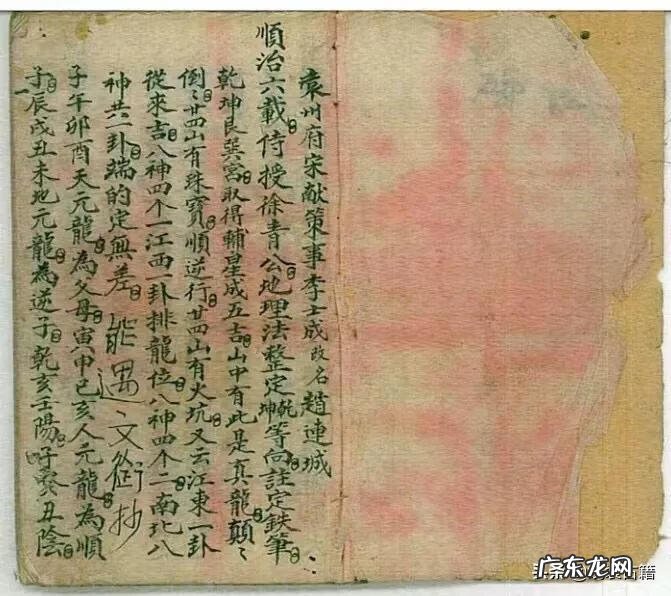 袁州府宋献策事李士成改名趙連城
順治六載侍授徐青公地理法整定乾坤等向註定鉄筆
乾坤艮巽宮取得輔星成五吉山中有此是真龍顛〻
倒〻廿四山有珠寶順逆行廿四山有火坑又云江東一卦
從來吉八神四个一江西一卦排龍位八神四个二南北八
神共一卦端的定無差
子午卯酉天元龍為父母寅申巳亥人元龍為順
子辰戌丑未地元龍為逆子乾亥壬陽子癸丑陰
文衛抄
广东龙网